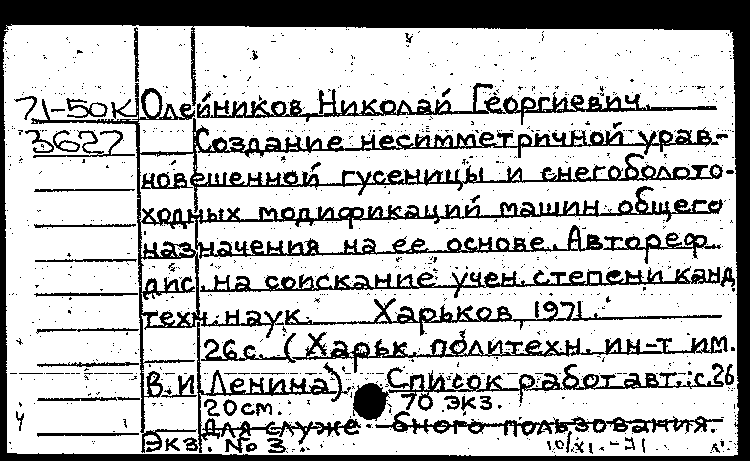 71-50к Олейников, Николай Георгиевич.
3627 Создание несимметричной урав-
новешенной гусеницы и снегоболото-
ходных модификаций машин общего
назначения на ее основе. Автореф.
дис. на соискание учен. степени канд
техн. наук. Харьков, 1971.
26с. (Харьк. политехн. ин-т им.
В.И. Ленина). Список работ авт.: с.26
20см. 70 экз.
Для служебного пользования.
Экз. № 3 10/XI.-71